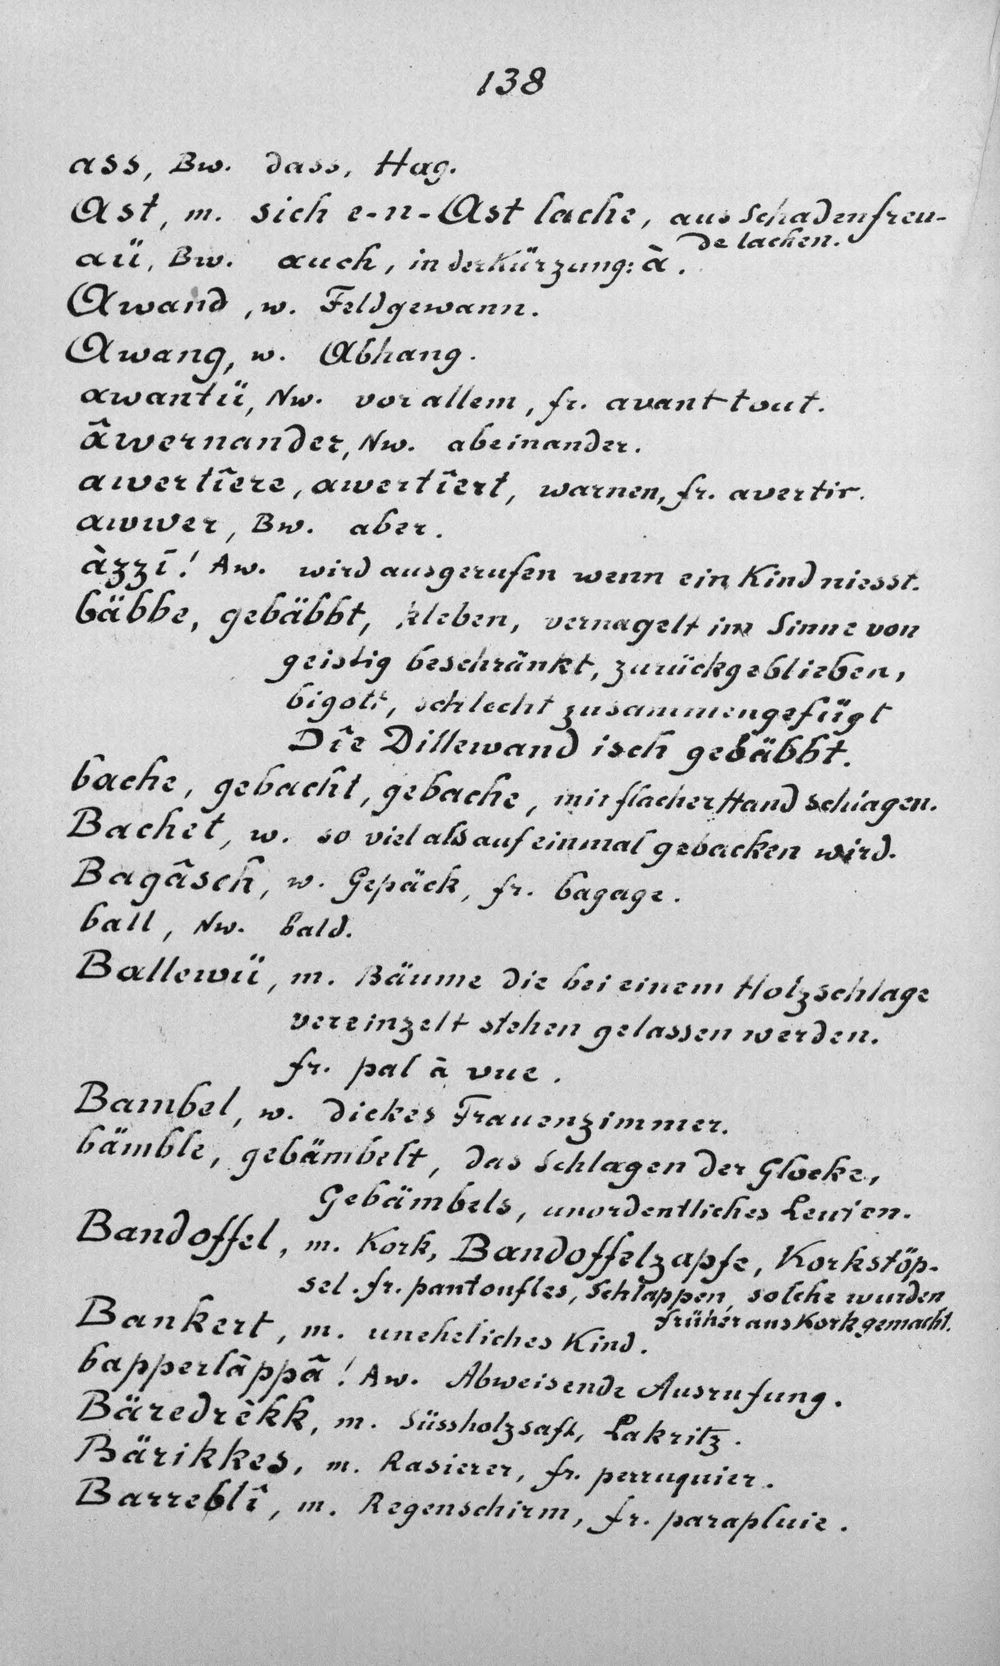 138
ass, Bw. dass, Hag.
Ast, m. sich e-n-Ast lache, aus Schadenfreu-
de lachen.
aü, Bw. auch, in der Kürzung: à.
Awand, w. Feldgewann.
Awang, w. Abhang.
awantü, Nw. vor allem, fr. avant tout.
âwernander, Nw. abeinander.
awertîere, awertîert, warnen, fr. avertir.
awwer, Bw. aber.
àzzî! Aw. wird ausgerufen wenn ein Kind niesst.
bäbbe, gebäbbt, kleben, vernagelt im Sinne von
geistig beschränkt, zurückgeblieben,
bigott, schlecht zusammengefügt
Dîe Dillewand isch gebäbbt.
bache, gebacht, gebache, mit flacher Hand schlagen.
Bachet, w. so viel als auf einmal gebacken wird.
Bagâsch, w. Gepäck, fr. bagage.
ball, Nw. bald.
Ballewü, m. Bäume die bei einem Holzschlage
vereinzelt stehen gelassen werden.
fr. pal à vue.
Bambel, w. dickes Frauenzimmer.
bämble, gebämbelt, das Schlagen der Glocke,
Gebämbels, unordentliches Leuten.
Bandoffel, m. Kork, Bandoffelzapfe, Korkstöp-
sel. fr. pantoufles, Schlappen, solche wurden
früher aus Kork gemacht.
Bankert, m. uneheliches Kind.
bapperlàppâ! Aw. Abweisende Ausrufung.
Bäredrèkk, m. Süssholzsaft, Lakritz.
Bärikkes, m. Rasierer, fr. perruquier.
Barreblî, m. Regenschirm, fr. parapluie.